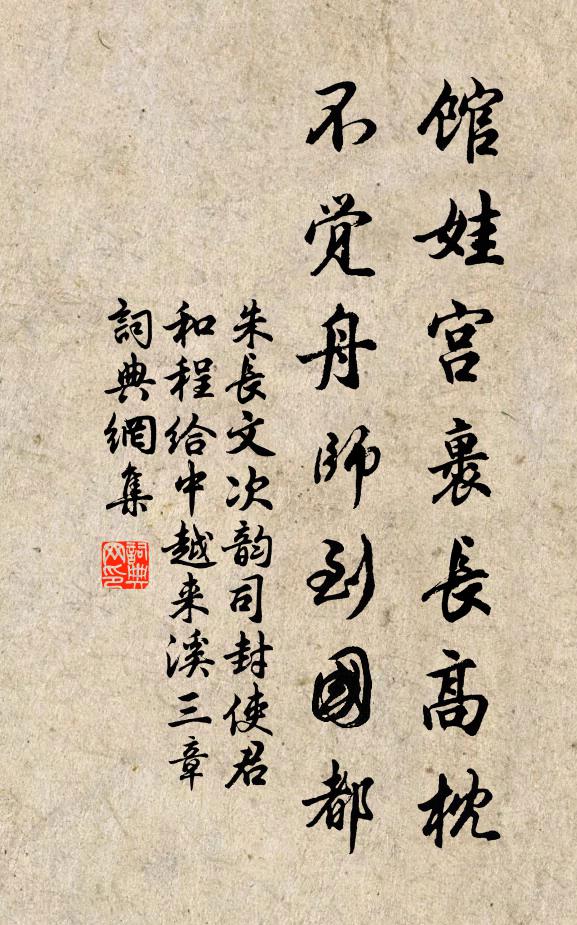 馆娃宫裏長高枕
不覺舟師到國都
朱長文次韵司封使君
和程给中越来溪三章
詞典網集
詞典
网印